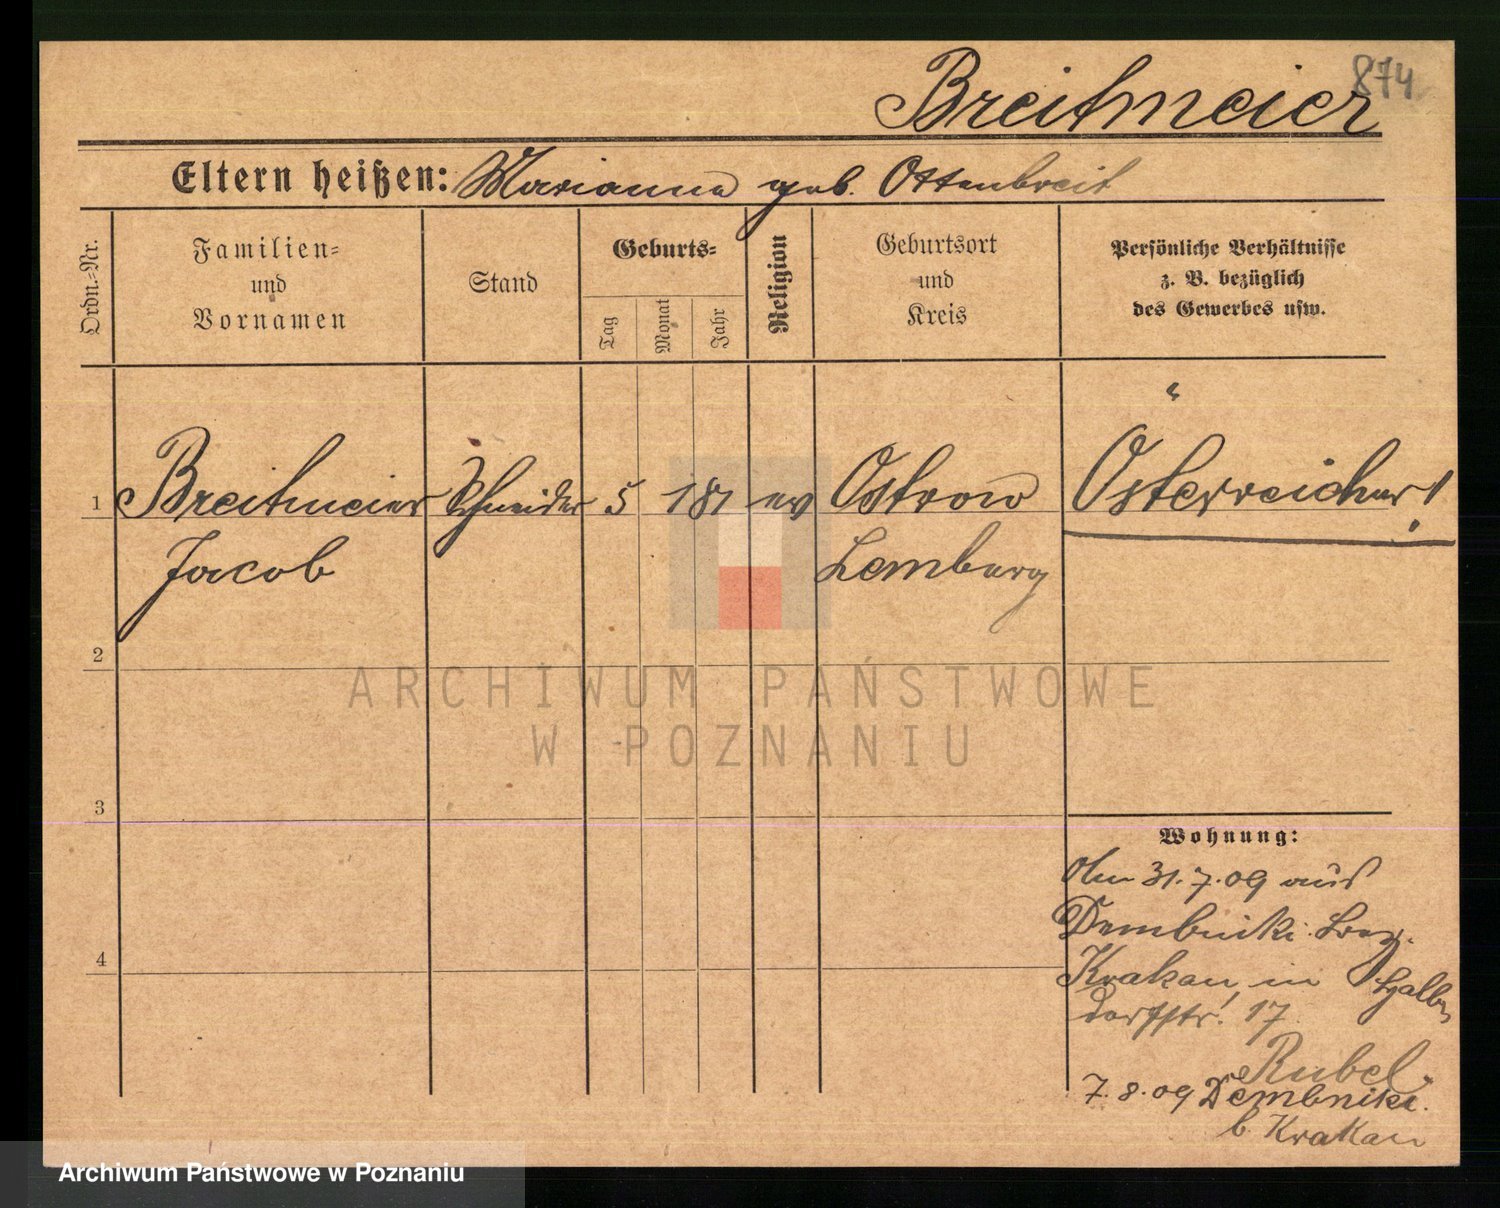 874
Breitmeier
Eltern heißen: Marianna geb. Ottenbreit
Ordn.-Nr.
Familien-
und
Vornamen
Stand
Geburts-
Tag
Monat
Jahr
Religion
Geburtsort
und
Kreis
Persönliche Verhältnisse
z. B. bezüglich
des Gewerbes usw.
1 Breitmeier Schneider 5 1 81 ev Ostrow Österreicher!
Jacob Lemberg
2
3
4
ARCHIWUM PAŃSTWOWE
W POZNANIU
Wohnung:
31.7.09 aus
Dembniki Bez.
Krakau, in Halb
dorfstr. 17
Rubel
7.8.09 Dembniki
b. Krakau
Archiwum Państwowe w Poznaniu